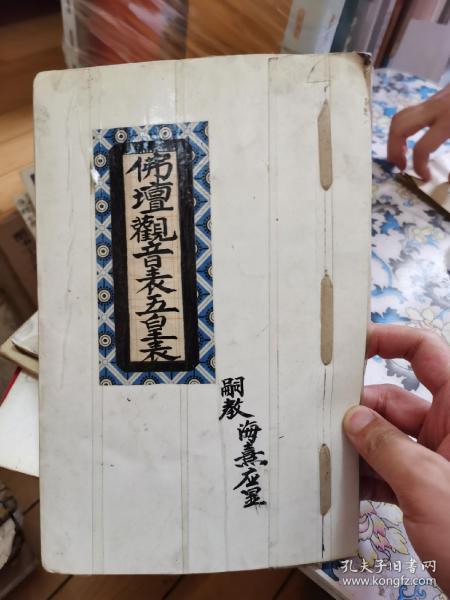 佛壇觀音表五皇表
嗣教 海熹应置
孔夫子旧书网
www.kongfz.com